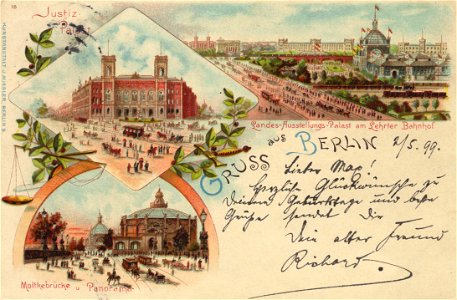 18
Justiz-
Palast
KUNSTANSTALT J. MIESLER, BERLIN S.
Landes-Ausstellungs-Palast am Lehrter Bahnhof
GRUSS aus BERLIN
2/5. 99.
Lieber Max!
Herzliche Glückwünsche zu
Deinem Geburtstage und beste
Grüße sendet dir
Dein alter Freund
Richard.
Moltkebrücke u Panorama